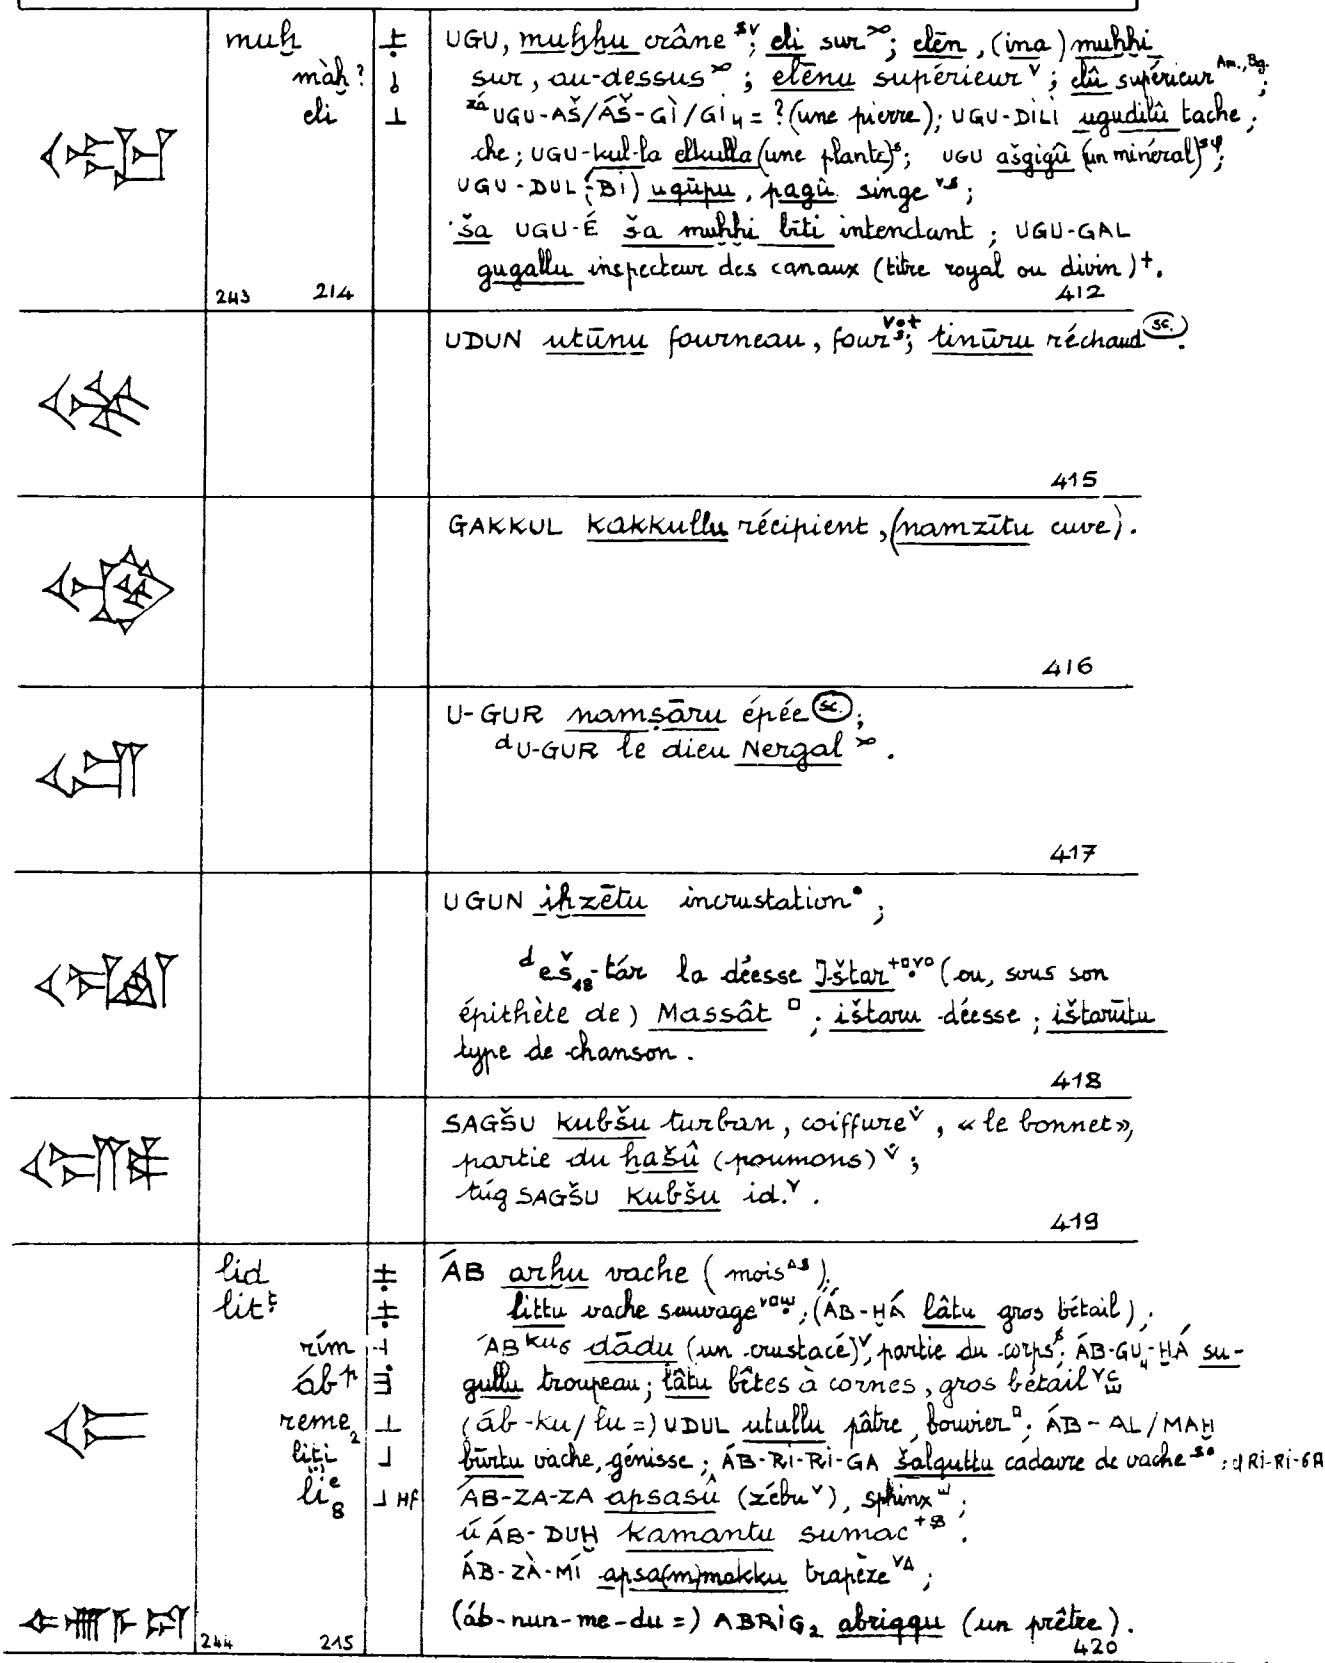 muḫ ⟂ UGU, muḫḫu crâne ; eli sur ; elēn, (ina) muḫḫi
màḫ? sur, au-dessus ; elēnu supérieur ; elû supérieur Am., Bg. ;
eli zá UGU-AŠ/ÁŠ-GÌ/GI₄ = ? (une pierre) ; UGU-DILI ugudilû tache ;
che ; UGU-kul-la elkulla (une plante) ; UGU ašgigû (un minéral) ;
UGU-DUL(-BI) uqūpu, pagû singe ;
ša UGU-É ša muḫḫi bīti intendant ; UGU-GAL
gugallu inspecteur des canaux (titre royal ou divin)⁺.
243 214 412
UDUN utūnu fourneau, four ; tinūru réchaud (sc.).
415
GAKKUL kakkullu récipient, (namzītu cuve).
416
U-GUR namṣāru épée (sc.) ;
ᵈU-GUR le dieu Nergal .
417
UGUN iḫzētu incrustation• ;
ᵈeš₁₈-tár la déesse Ištar (ou, sous son
épithète de) Massât ; ištaru déesse ; ištarūtu
type de chanson.
418
SAGŠU kubšu turban, coiffure , « le bonnet »,
partie du ḫašû (poumons) ;
túg SAGŠU kubšu id. .
419
lid ÁB arhu vache (mois ).
lit littu vache sauvage ; (ÁB-ḪÁ lâtu gros bétail).
rím ÁB KU₆ dādu (un crustacé), partie du corps ; ÁB-GU₄-ḪÁ su-
áb p gullu troupeau ; lâtu bêtes à cornes, gros bétail
reme₂ (áb-ku/lu =) UDUL utullu pâtre, bouvier ; ÁB-AL/MAḪ
liti būrtu vache, génisse ; ÁB-RI-RI-GA šalquttu cadavre de vache ; RI-RI-GA
li₈ Hf ÁB-ZA-ZA apsasû (zébu), sphinx ;
ú ÁB-DUḪ kamantu sumac .
ÁB-ZÀ-MÍ apsa(m)makku trapèze ;
(áb-nun-me-du =) ABRIG₂ abriqqu (un prêtre).
244 215 420